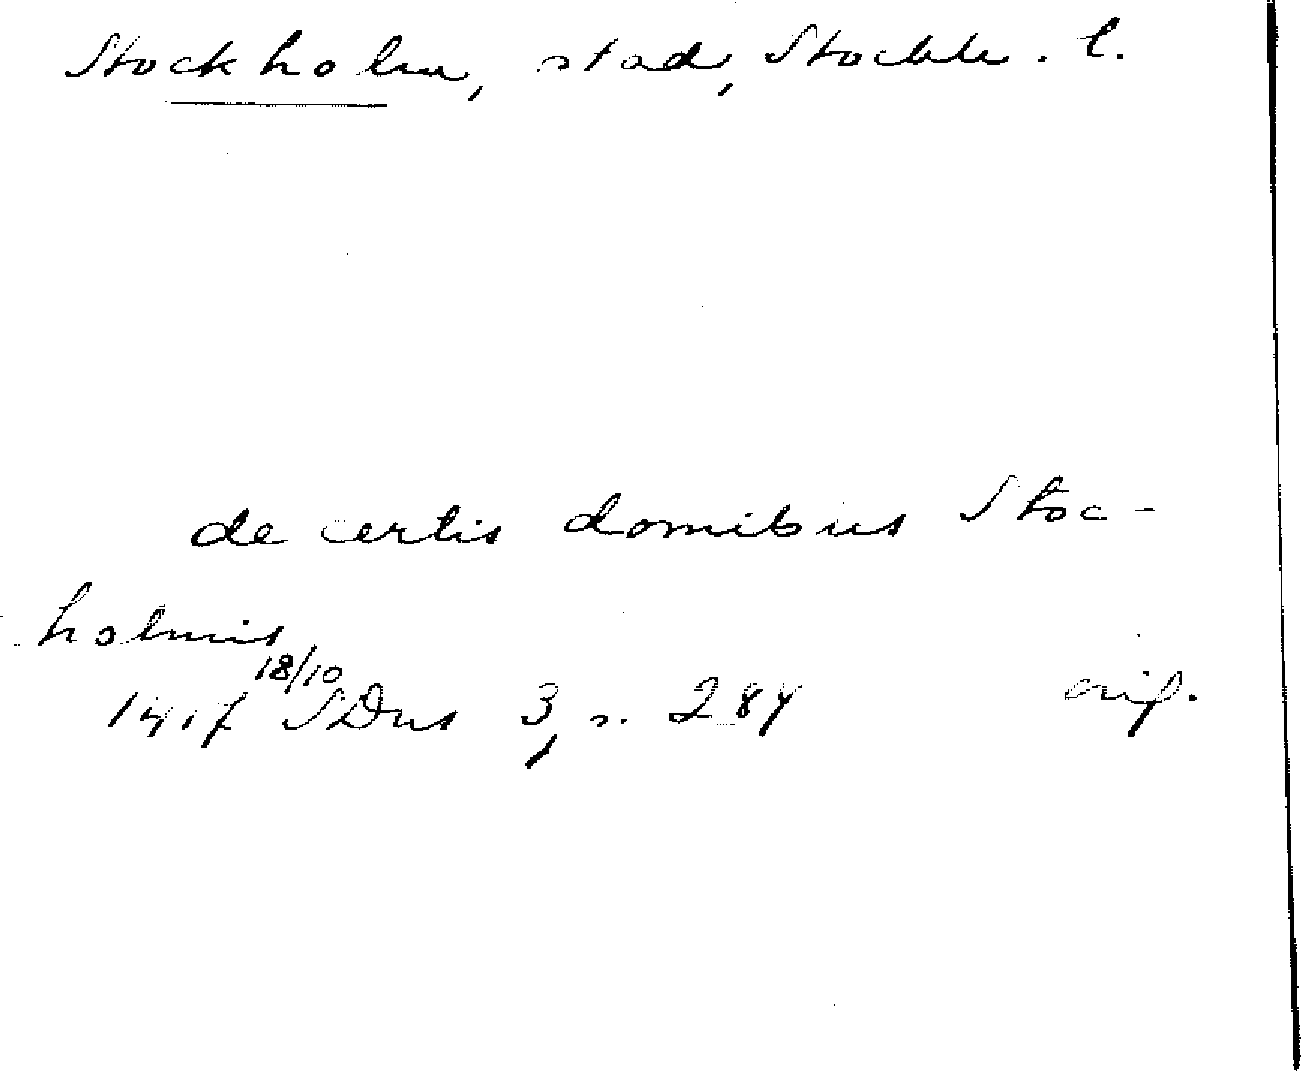 Stockholm, stad, Stockh. l.
de certis domibus Stoc-
holmis
1417 18/10 SDns 3, s. 284 orig.